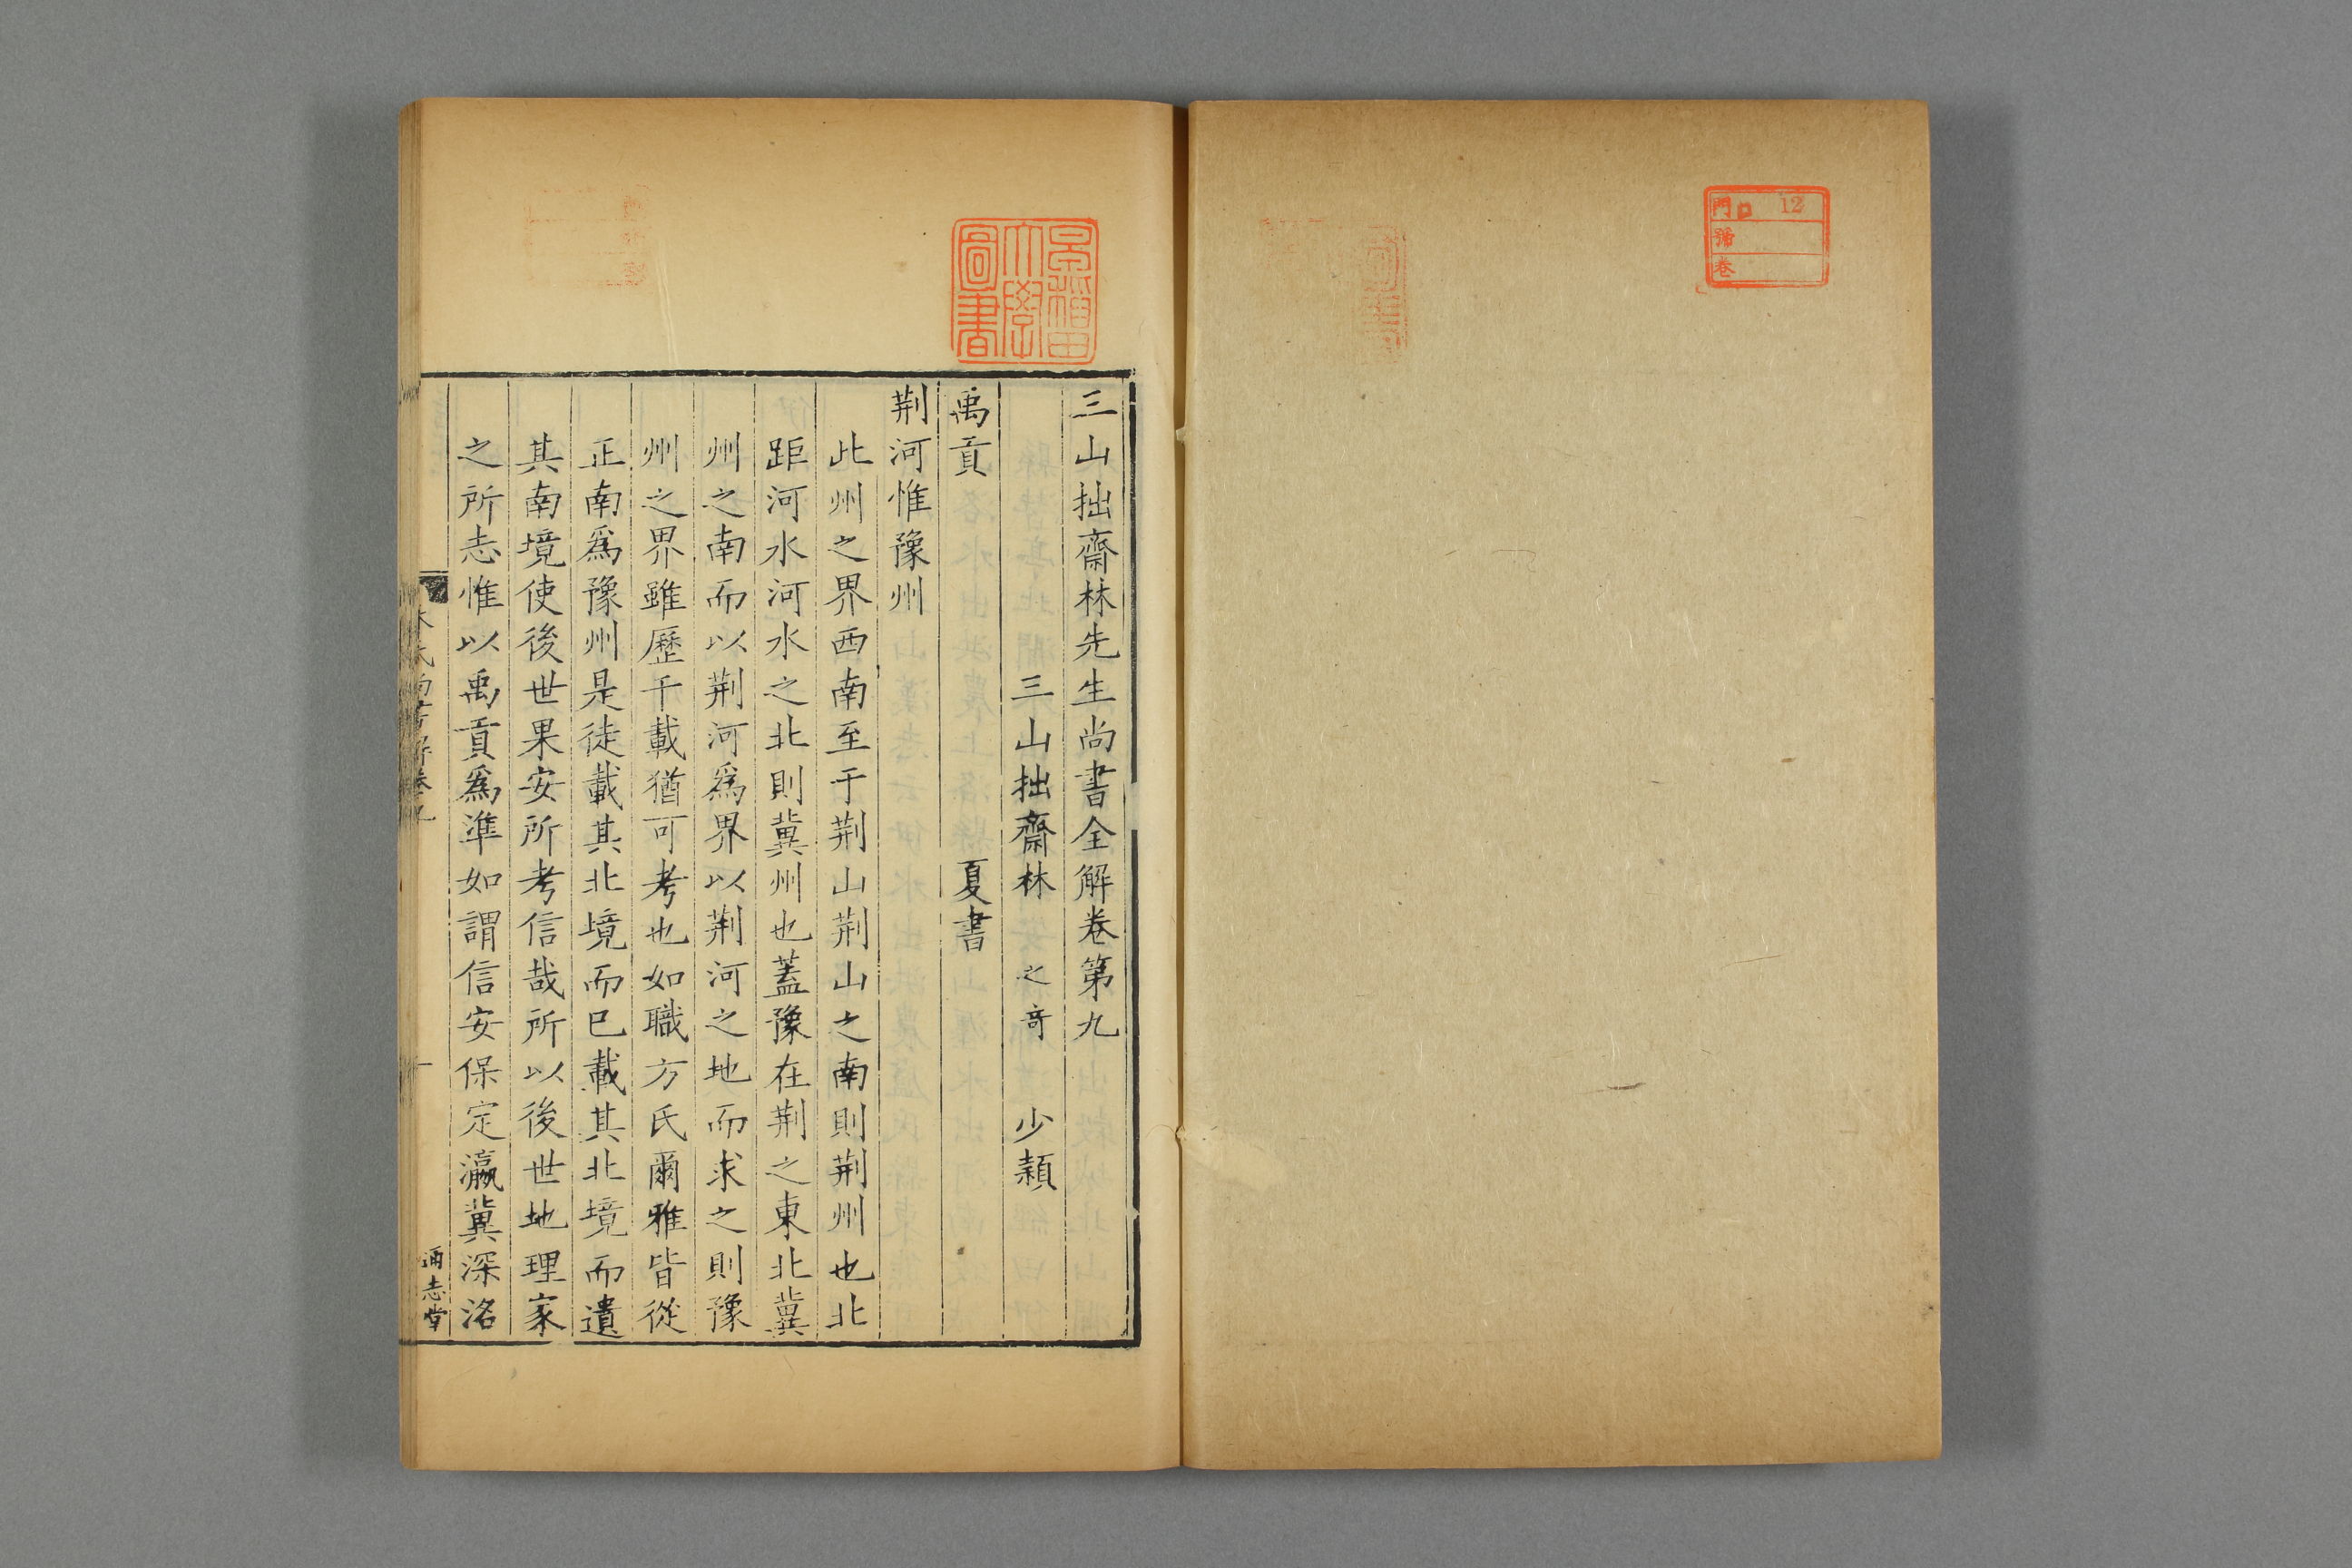 門 口 12
號
卷
早稻田
大學
圖書
三山拙齋林先生尚書全解卷第九
三山拙齋林 之奇 少頴
禹貢 夏書
荆河惟豫州
此州之界西南至于荆山荆山之南則荆州也北
距河水河水之北則冀州也蓋豫在荆之東北冀
州之南而以荆河爲界以荆河之地而求之則豫
州之界雖歷千載猶可考也如職方氏爾雅皆從
正南爲豫州是徒載其北境而巳載其北境而遺
其南境使後世果安所考信哉所以後世地理家
之所志惟以禹貢爲準如謂信安保定瀛冀深洺
林氏尚書解卷九
一
通志堂